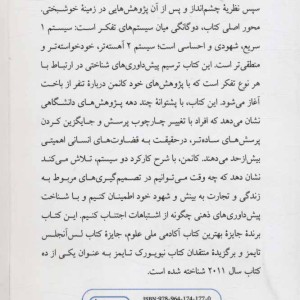 سپس نظریهٔ چشم‌انداز و پس از آن پژوهش‌هایی در زمینهٔ خوشبختی.
محور اصلی کتاب، دوگانگی میان سیستم‌های تفکر است: سیستم ۱
سریع، شهودی و احساسی است؛ سیستم ۲ آهسته‌تر، خودخواسته‌تر و
منطقی‌تر است. این کتاب ترسیم پیش‌داوری‌های شناختی در ارتباط با
هر نوع تفکر است که با پژوهش‌های خود کانمن دربارهٔ تنفر از باخت
آغاز می‌شود. این کتاب، با پشتوانهٔ چند دهه پژوهش‌های دانشگاهی
نشان می‌دهد که افراد با تغییر چارچوب پرسش و جایگزین کردن
پرسش‌های ساده‌تر، درحقیقت به قضاوت‌های انسانی اهمیتی
بیش‌ازحد می‌دهند. کانمن، با شرح کارکرد دو سیستم، تلاش می‌کند
نشان دهد که چه وقت می‌توانیم در تصمیم‌گیری‌های مربوط به
زندگی و تجارت به بینش و شهود خود اطمینان کنیم و با شناخت
پیش‌داوری‌های ذهنی چگونه از اشتباهات اجتناب کنیم. این کتاب
برندهٔ جایزهٔ بهترین کتاب آکادمی ملی علوم، جایزهٔ کتاب لس‌آنجلس
تایمز و برگزیدهٔ منتقدان کتاب نیویورک تایمز به عنوان یکی از ده
کتاب سال ۲۰۱۱ شناخته شده است.
ISBN: 978-964-174-177-0